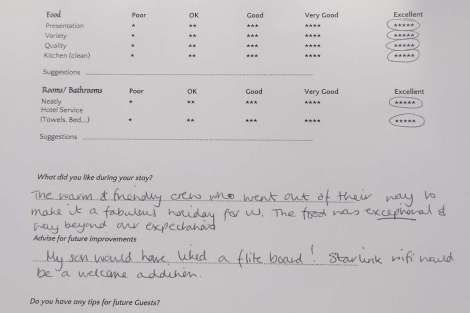 Food Poor OK Good Very Good Excellent
Presentation * ** *** **** *****
Variety * ** *** **** *****
Quality * ** *** **** *****
Kitchen (clean) * ** *** **** *****
Suggestions
Rooms/ Bathrooms Poor OK Good Very Good Excellent
Neaty * ** *** **** *****
Hotel Service
(Towels, Bed...) * ** *** **** *****
Suggestions
What did you like during your stay?
The warm & friendly crew who went out of their way to
make it a fabulous holiday for us. The food was exceptional &
way beyond our expectations
Advise for future improvements
My son would have liked a flite board! Starlink wifi would
be a welcome addition.
Do you have any tips for future Guests?